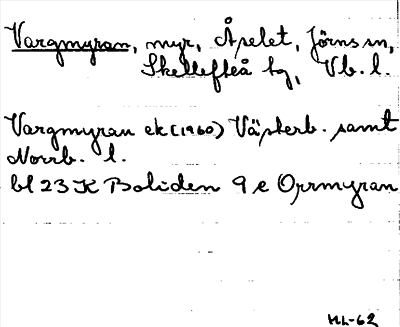 Vargmyran, myr, Åselet, Jörns sn,
Skellefteå tg, Vb. l.
Vargmyran ek (1960) Västerb. samt
Norrb. l.
bl 23 K Boliden 9 e Orrmyran
HL-62